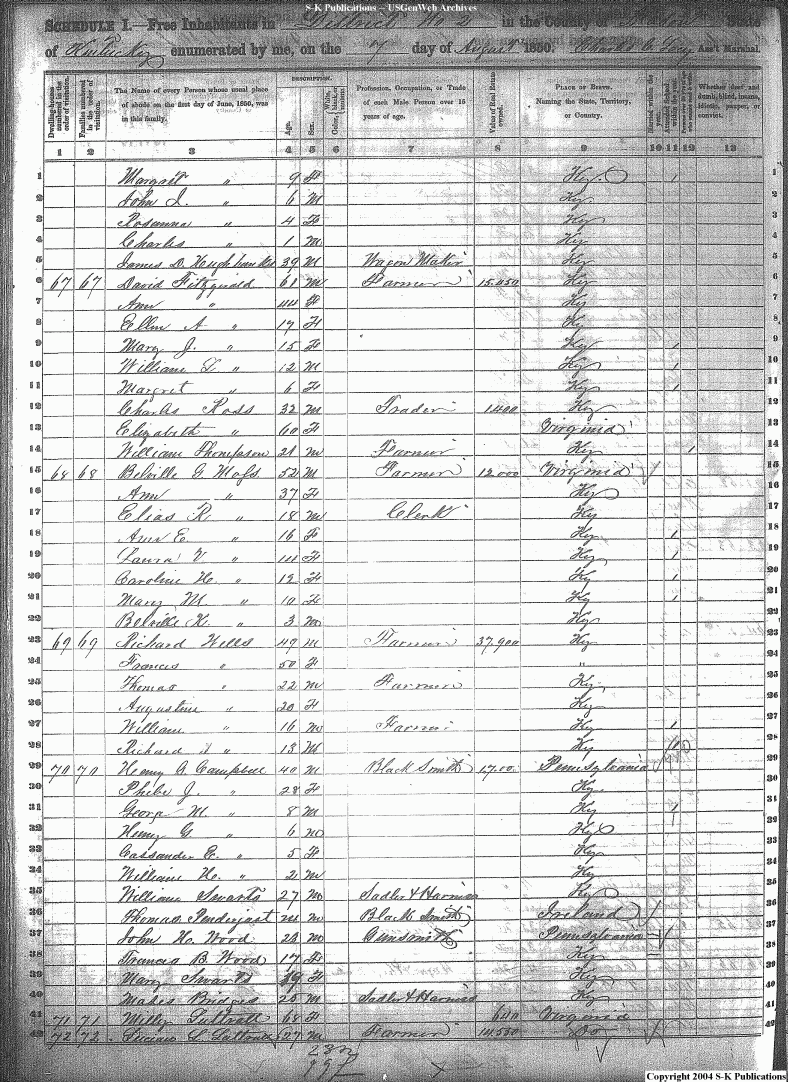 S-K Publications -- USGenWeb Archives
SCHEDULE I.—Free Inhabitants in District No 2 in the County of State
of Kentucky enumerated by me, on the 7 day of August 1850. Ass't Marshal.
Dwelling-houses numbered in the order of visitation.
Families numbered in the order of visitation.
The Name of every Person whose usual place of abode on the first day of June, 1850, was in this family.
DESCRIPTION.
Age.
Sex.
Color,
Profession, Occupation, or Trade of each Male Person over 15 years of age.
Value of Real Estate owned.
PLACE OF BIRTH. Naming the State, Territory, or Country.
Married within the year.
Attended School within the year.
Whether deaf and dumb, blind, insane, idiotic, pauper, or convict.
1 2 3 4 5 6 7 8 9 10 11 12 13
1 Margret " 9 F Ky. 1 1
2 John J. " 6 M Ky 2
3 Rosanna " 4 F Ky 3
4 Charles " 1 M Ky 4
5 James D. 39 M Wagon Maker Ky 5
6 67 67 David Fitzgerald 61 M Farmer Ky 6
7 Ann " 44 F Ky 7
8 Ellen A " 17 F Ky 8
9 Mary J. " 15 F Ky 1 9
10 William " 12 M Ky 1 10
11 Margret " 6 F Ky 1 11
12 Charles Ross 32 M Trader 1400 Ky 12
13 Elizabeth " 60 F Virginia 13
14 William Thompson 21 M Farmer Ky 1 14
15 68 68 Belville G. Moss 52 M Farmer 12.000 Virginia 15
16 Ann " 37 F Ky 16
17 Elias R. " 18 M Clerk Ky 17
18 Ann E. " 16 F Ky 1 18
19 Laura V " 14 F Ky 1 19
20 Caroline H. " 12 F Ky 1 20
21 Mary M. " 10 F Ky 1 21
22 Belville K. " 3 M Ky 22
23 69 69 Richard Wells 49 M Farmer 37.900 Ky 23
24 Frances " 50 F " 24
25 Thomas " 22 M Farmer Ky 25
26 Augustine " 20 F Ky 26
27 William " 16 M Farmer Ky 1 27
28 Richard " 13 M Ky 1 28
29 70 70 Henry G. Campbell 40 M Black Smith 1700 Pennsylvania 29
30 Phebe J. " 28 F Ky. 30
31 George M. " 8 M Ky 1 31
32 Henry G " 6 M Ky 32
33 Cassander E. " 5 F Ky 33
34 William H. " 2 M Ky 34
35 William Swarts 27 M Sadler & Harness Ky 35
36 Thomas Pendergast M Black Smith Ireland 36
37 John H. Wood 23 M Gunsmith Pennsylvania 37
38 Frances B. Wood 17 F Ky 38
39 Mary Swarts 19 F Ky 39
40 Bridges 20 M Sadler & Harness Ky 40
41 71 71 Milly 68 F 600 Virginia 41
42 72 72 27 M Farmer Do 42
Copyright 2004 S-K Publications